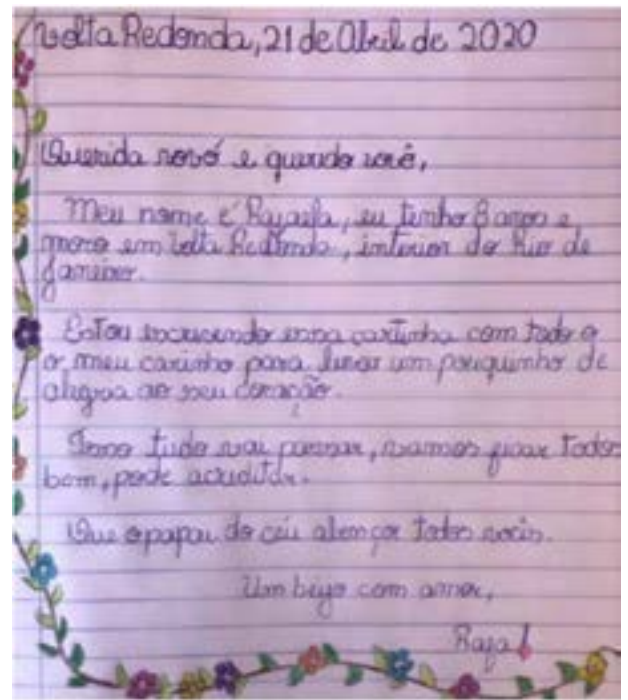 Volta Redonda, 21 de Abril de 2020
Querida vovó e querido vovô,
Meu nome é Rafaela, eu tenho 8 anos e
moro em Volta Redonda, interior do Rio de
Janeiro.
Estou escrevendo essa cartinha com todo o
o meu carinho para levar um pouquinho de
alegria ao seu coração.
Isso tudo vai passar, vamos ficar todos
bem, pode acreditar.
Que o papai do céu abençoe todos vocês.
Um beijo com amor,
Rafa!